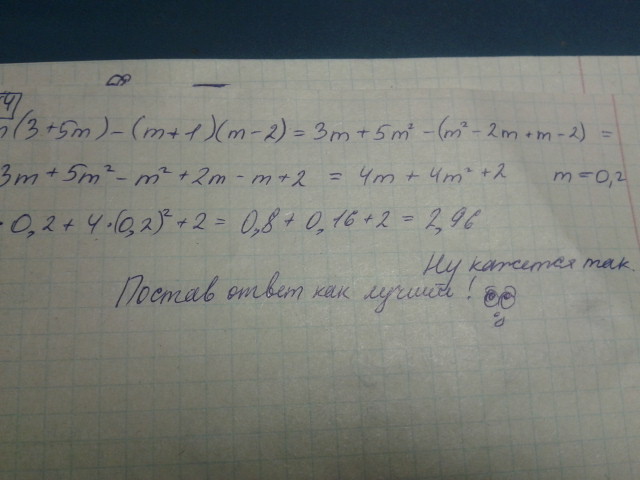 4
(3+5m)-(m+1)(m-2)=3m+5m²-(m²-2m+m-2)=
3m+5m²-m²+2m-m+2 = 4m+4m²+2 m=0,2
·0,2+4·(0,2)²+2=0,8+0,16+2=2,96
Ну кажется так.
Постав ответ как лучший!